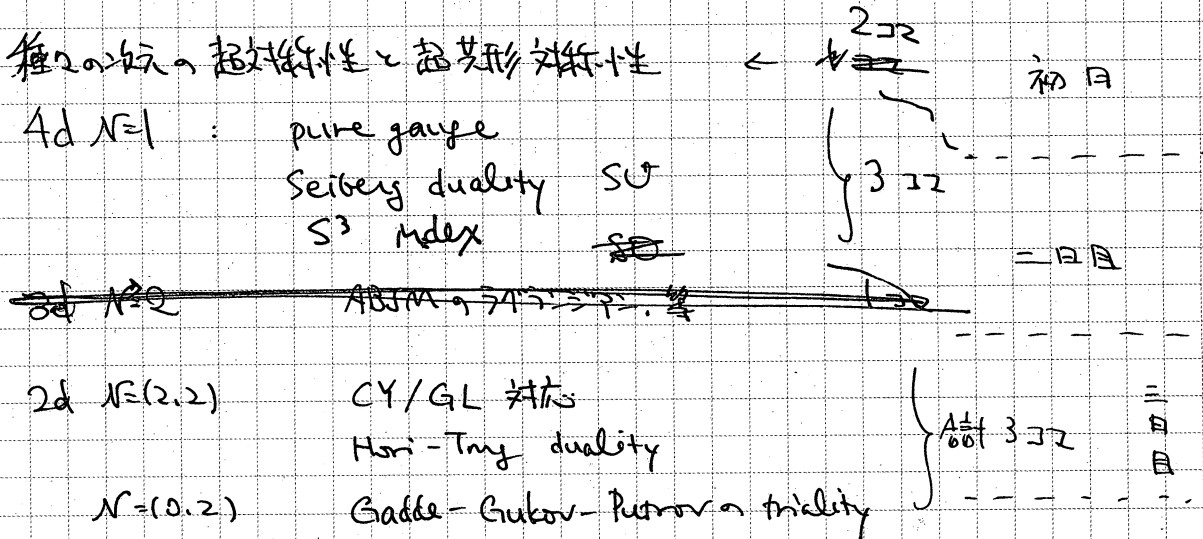 種々の次元の超対称性と超共形対称性 ← 2コマ 初日
4d N=1 : pure gauge
Seiberg duality SU 3コマ
S³ index SO
二日目
3d N=2 ABJMのラグランジアン、等 1コマ
2d N=(2,2) CY/GL 対応
Hori-Tong duality 合計 3コマ 三日目
N=(0,2) Gadde-Gukov-Putrovの triality